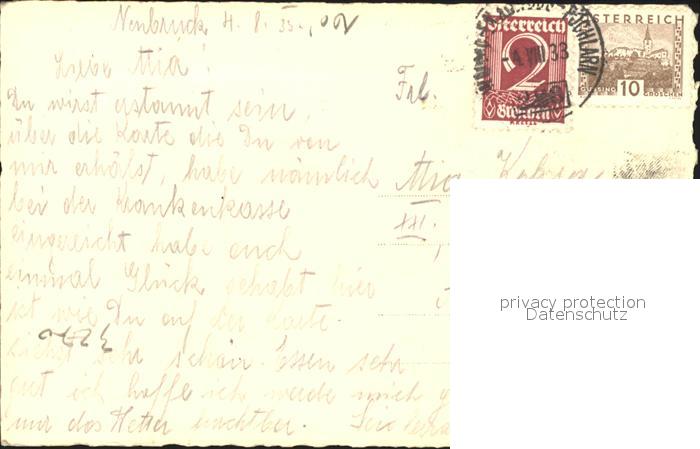 Neubruck 4. 8. 33.
Liebe Mia!
Du wirst erstaunt sein,
über die Karte die Du von
mir erhälst, habe nämlich
bei der Krankenkasse
eingereicht habe auch
einmal Glück gehabt hier
ist wie Du auf der Karte
siehst sehr schön. Essen sehr
gut ich hoffe ich werde mich
nur das Wetter
Frl.
Mia
XXI.
ÖSTERREICH
2
Groschen
-4. VIII 33
ÖSTERREICH
GÜSSING 10 GROSCHEN
privacy protection
Datenschutz